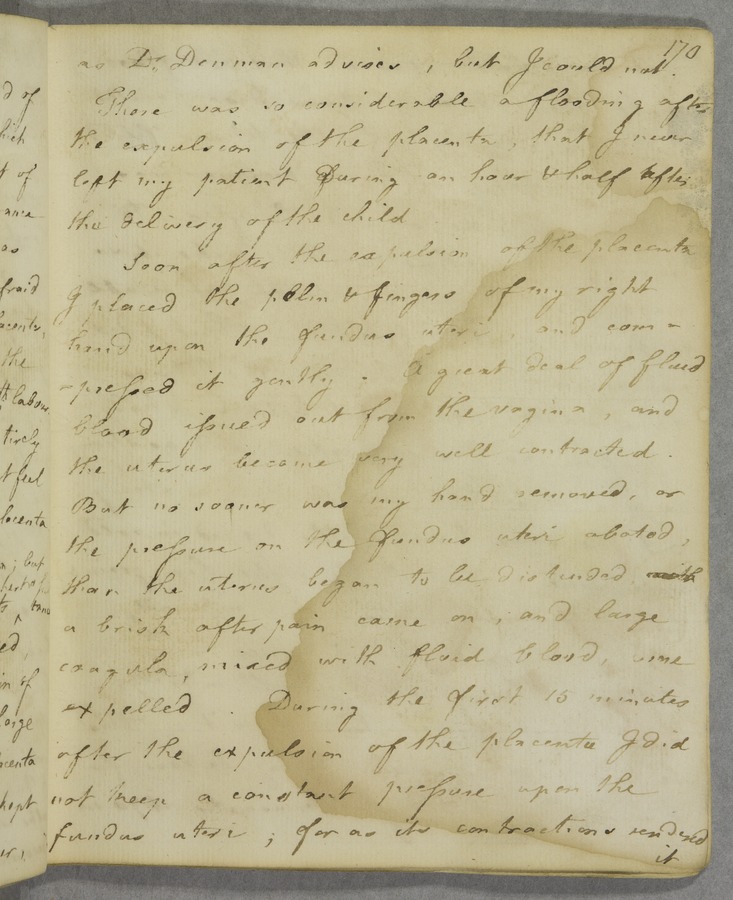 170
as Dr. Denman advises, but I could not.
There was so considerable a flooding after
the expulsion of the placenta, that I never
left my patient During an hour & half after
the delivery of the child
Soon after the expulsion of the placenta
I placed the palm & fingers of my right
hand upon the fundus uteri and com=
=pressed it gently. A great deal of fluid
blood issued out from the vagina, and
the uterus became very well contracted.
But no sooner was my hand removed, or
the pressure on the fundus uteri abated,
than the uterus began to be distended,
a brisk after pain came on, and large
coagula, mixed with fluid blood, were
expelled. During the first 15 minutes
after the expulsion of the placenta I did
not keep a constant pressure upon the
fundus uteri; for as its contractions rendered
it
d of
hich
t of
ance
as
fraid
acenta,
the
labour
tirely
t feel
lacenta
n; but
ed,
in of
large
centa
kept